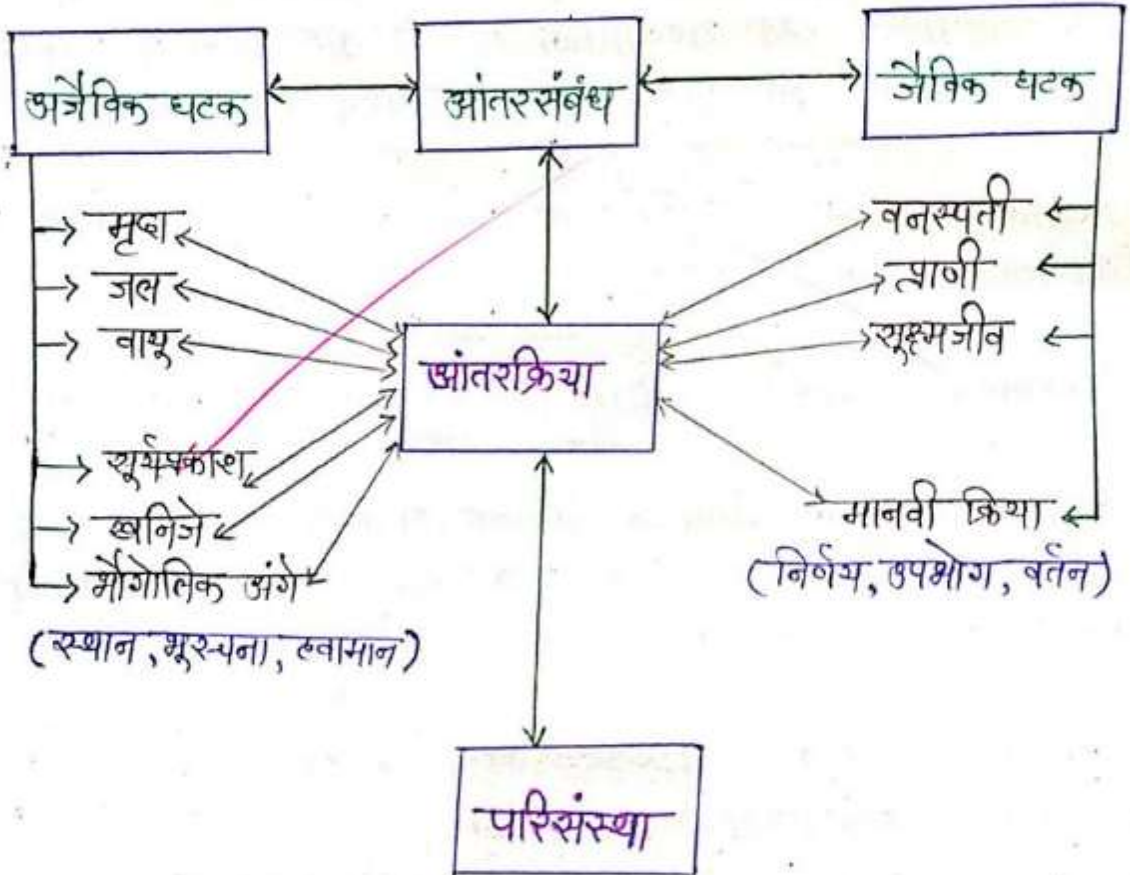 अजैविक घटक
आंतरसंबंध
जैविक घटक
मृदा
जल
वायू
सूर्यप्रकाश
खनिजे
भौगोलिक अंगे
(स्थान, भूरचना, हवामान)
आंतरक्रिया
वनस्पती
प्राणी
सूक्ष्मजीव
मानवी क्रिया
(निर्णय, उपभोग, वर्तन)
परिसंस्था